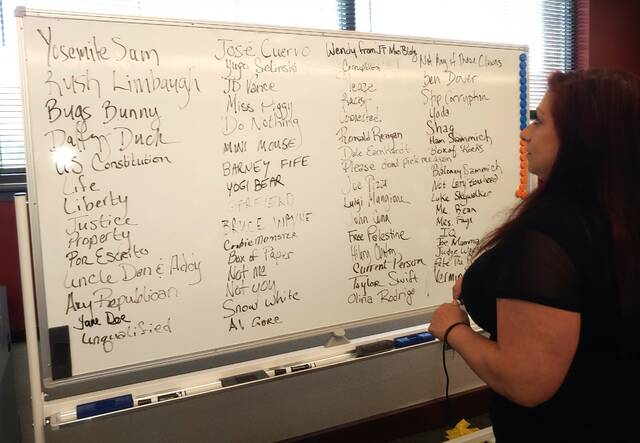 Yosemite Sam
Rush Limbaugh
Bugs Bunny
Daffy Duck
US Constitution
Life
Liberty
Justice
Property
Por Escrito
Uncle Dan & Addy
Any Republican
Jane Doe
Unqualified
José Cuervo
Yugo Selinski
JD Vance
Miss Piggy
Do Nothing
MINI MOUSE
BARNEY FIFE
YOGI BEAR
GARFIELD
BRUCE WAYNE
Cookie Monster
Box of Paper
Not Me
Not you
Snow White
Al Gore
Wendy from
Corruption
Racist
Ronald Reagan
Dale Earnhardt
Please dont pick me again
Joe Pizza
Luigi Mangione
John Cena
Free Palestine
Current Person
Taylor Swift
Olina Rodrigo
Not Any of These Clowns
Ben Dover
Stop Corruption
Yoda
Shag
Ham Sammich
Box of Rocks
Baloney Sammich
Not Lazy
Luke Skywalker
Mr. Bean
Mrs. Frys
IQ
Joe Momma
Judge
Pete The
Vermin